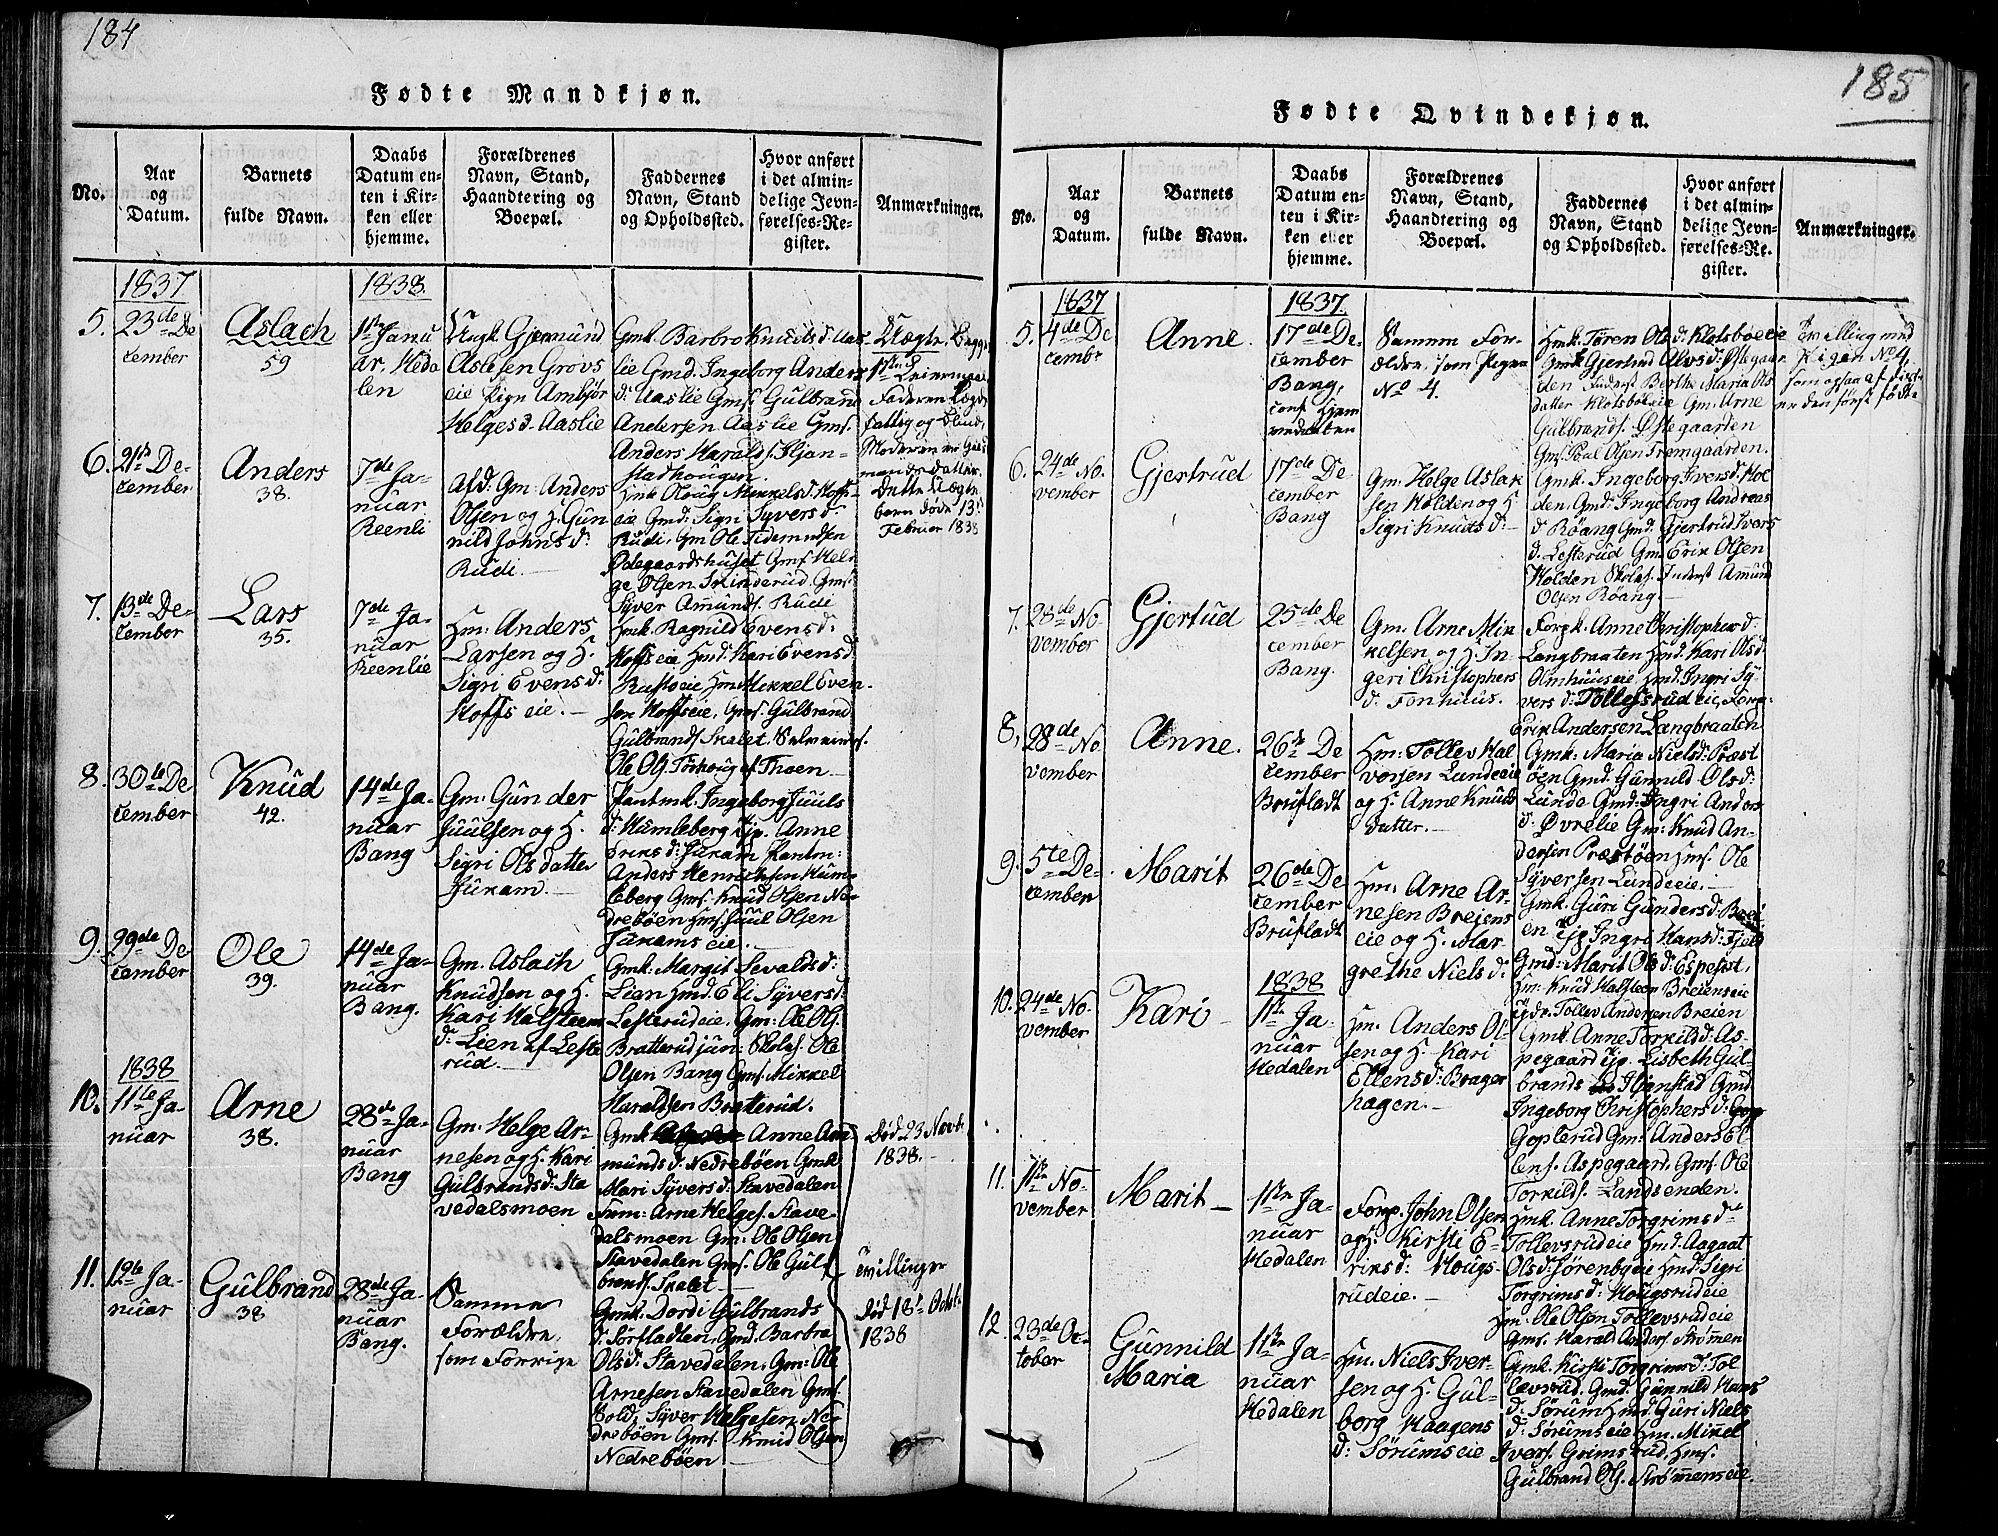 184
Fødte Mandkjøn.
No.
Aar
og
Datum.
Barnets
fulde Navn.
Daabs
Datum en-
ten i Kir-
ken eller
hjemme.
Forældrenes
Navn, Stand,
Haandtering og
Boepæl.
Faddernes
Navn, Stand
og Opholdssted.
Hvor anført
i det almin-
delige Jevn-
førelses-Re-
gister.
Anmærkninger.
1837
1838
5.
23de De
cember
Aslach
59
1ste Janu
ar, Heda
len
Ungk. Gjermund
Aslesen Grøvs
eie Pign Ambjør
Helgesd. Aaslie
Gmk. Barbro Knudsd. Aas
lie Gmd. Ingeborg Anders
d. Aaslie Gmf. Gulbrand
Andersen Aaslie Gmf.
Anders Haralds.
stadhougen.
Uægte, Begges
1ste Leiermaal
Faderen Lægd
fattig og blind,
Moderen en Gaard
mands datter.
Dette Uægte
barn døde 13de
Februer 1838
6.
21de De-
cember
Anders
38.
7de Ja-
nuar
Reenli
Afd: Gm: Anders
Olsen og H. Gun
nild Johnsd:
Rudi.
Hmk. Oloug Mikkelsd. Hoffs
eie Gmd: Sigri Syversd:
Rudi, Gm Ole Tidemandsen
Ødegaardshuset Gmf. Hel-
ge Olsen Trinderud, Gmf.
Syver Amunds. Rudi
7.
13de De-
cember
Lars
35.
7de Ja-
nuar
Reenlie
Hm: Anders
Larsen og H.
Sigri Evensd:
Hoffs eie.
Hmk. Ragnild Evensd:
Hoffs eie Hmd: Kari Evensd
Rustoeie Hm: Mikkel Even-
sen Hoffseie, Gmf. Gulbrand
Gulbrands. Skalet.
Ole Ols. Torhoug af Thoen
8.
30te De
cember
Knud
42.
14de Ja-
nuar
Bang
Gm: Gunder
Juulsen og H.
Sigri Olsdatter
Juram.
Pantmk. Ingeborg Juuls
d: Humleberg Pig. Anne
Eriksd: Juram Pantm:
Anders Henriksen Hum-
leberg Gmf. Knud Olsen Ne-
drebøen Hmf. Juul Olsen
Jurams eie.
9.
29de De
cember
Ole
39.
14de Ja-
nuar
Bang.
Gm. Aslach
Knudsen og H.
Kari Halsteen
d: Lien af Leste
rud.
Gmk: Margit Sevaldsd:
Lien Hmd: Eli Syversd:
Lesterudeie, Gm: Ole Ols.
Bratterud jun: Skolef. Ole
Olsen Bang Gmf. Mikkel
Haraldsen Bratterud.
1838
10.
11te Ja-
nuar
Arne
38.
28de Ja-
nuar
Bang
Gm: Helge Ar-
nesen og H. Kari
Gulbrandsd: Sta
vedalsmoen
Gmk. Anne Am
mundsd: Nedrebøen Gmk
Mari Syversd: Stavedalen
Arne Helges. Stave-
dalsmoen Gm: Ole Olsen
Stavedalen Gmf. Ole Gul-
brands. Skalet
Død 23 Novb.
1838.
11.
12te Ja-
nuar
Gulbrand
38
28de Ja-
nuar
Bang.
Samme
Forældre,
som Forrige
Gmk: Dordi Gulbrands
d: Gmd. Barbra
Olsd: Stavedalen, Gm: Ole
Arnesen Stavedalen Gmf.
Sold: Syver Helgesen Ne-
drebøen Gmf. Knud Olsen
Nedrebøen
Tvillinger
Død 18de Octob.
1838
185
Fødte Qvindekjøn.
No.
Aar
og
Datum.
Barnets
fulde Navn.
Daabs
Datum en-
ten i Kir-
ken eller
hjemme.
Forældrenes
Navn, Stand,
Haandtering og
Boepæl.
Faddernes
Navn, Stand
og Opholdssted.
Hvor anført
i det almin-
delige Jevn-
førelses-Re-
gister.
Anmærkninger.
1837
1837.
5.
4de De
cembr
Anne.
17de De-
cember
Bang,
conf. Hjem
medøbten
Samme For-
ældre, som Pigen
No 4.
Hmk. Tøren Olsd. Klotsbøeie
Gmk Gjertrud Alvsd: Østegaar
den Inderst Berthe Maria Ols
datter Klotsbøeie Gm: Arne
Gulbrands. Østegaarden
Gmf. Poul Olsen Fremgaarden.
En Tvilling med
Pigen No 4,
som ogsaa af
er den først fødte
6.
24de No-
vember
Gjertrud
17de De
cember
Bang
Gm: Helge Aslak
sen Holden og H.
Sigri Knudsd:
Gmk. Ingeborg Iversd: Hol
den, Gmd: Ingeborg Andreas
d: Røang Gmd: Gjertrud Ivers
d: Lesterud Gm. Erik Olsen
Holden Skolef. Inderst Amund
Olsen Røang
7.
28de No-
vember
Gjertud
25de De
cember
Bang.
Gm: Arne Mik
kelsen og H. In-
geri Christophers
d: Fonhuus.
Forpk. Anne Christophersd:
Langbraaten Hmd: Kari Olsd:
Olmhuuseie Hmd: Ingri Sy-
versd: Tollefsrud eie, Forp:
Erik Andersen Langbraaten
8,
28de No
vember
Anne.
26de De
cember
Brufladt
Hm: Tollev Hal
vorsen Lundeeie
og H. Anne Knuds
datter.
Gmk: Maria Nielsd: Præst
øen Gmd: Gunnild Olsd:
Lunde Gmd: Ingri Anders
d: Øvrelie Gm: Knud An-
dersen Præstøen Hmf. Ole
Syversen Lundeeie.
9.
5te De-
cember
Marit
26de De
cember
Brufladt
Hm: Arne Ar-
nesen Breiens
eie og H. Mar
grethe Nielsd:
Gmk. Guri Gundersd: Brei-
en Pig Ingri Hansd: Fjeld
Gmd: Marit Olsd: Espeset,
Hm: Knud Halsteen Breienseie
Ugdr. Tollev Andersen Breien
1838
10.
24de No-
vember
Kari
1ste Ja-
nuar
Hedalen
Hm. Anders Ol-
sen og H. Kari
Ellensd: Brager
hagen.
Gmk. Anne Torkildsd: As-
pegaard Pig. Lisbeth Gul-
brandsd: Gmd
Ingeborg Christophersd:
Goplerud Gm: Anders El-
lens. Aspegaard, Gmf. Ole
Torkilds. Landsenden.
11.
11te No-
vember
Marit
1ste Ja-
nuar
Hedalen
Forp. John Olsen
og H. Kirsti E-
riksd: Hougs-
rudeie.
Hmk. Anne Torgrimsd:
Tollevsrudeie Hmd: Aagaat
Olsd: Sørenbyeie Hmd: Sigri
Torgrimsd: Hougsrudeie
Hm. Ole Olsen Tollevsrudeie
Gmf. Harald Anders. Strømmen
12.
23de Oc-
tober
Gunnild
Maria
1ste Ja-
nuar
Hedalen
Hm: Niels Iver-
sen og H. Gul-
borg Haagens
d: Sørumseie
Gmk. Kirsti Torgrimsd: Tol
levsrud. Gmd. Gunnild Hans
d: Sørum Hmd: Guri Niels
d: Sørumseie Hm. Mikel
Ivers. Grimsrud, Hmf.
Gulbrand Ols. Strømmenseie.